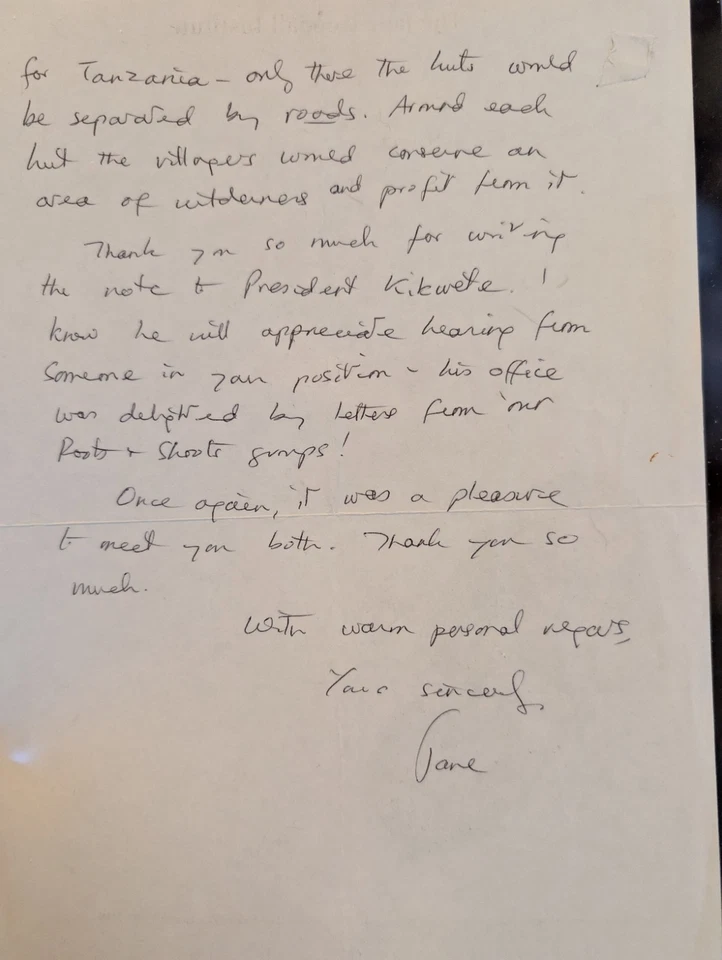 for Tanzania – only there the huts would
be separated by roads. Around each
hut the villagers would conserve an
area of wilderness and profit from it.
Thank you so much for writing
the note to President Kikwete. I
know he will appreciate hearing from
someone in your position – his office
was delighted by letters from our
Roots + Shoots groups!
Once again, it was a pleasure
to meet you both. Thank you so
much.
With warm personal regards,
Yours sincerely,
Jane